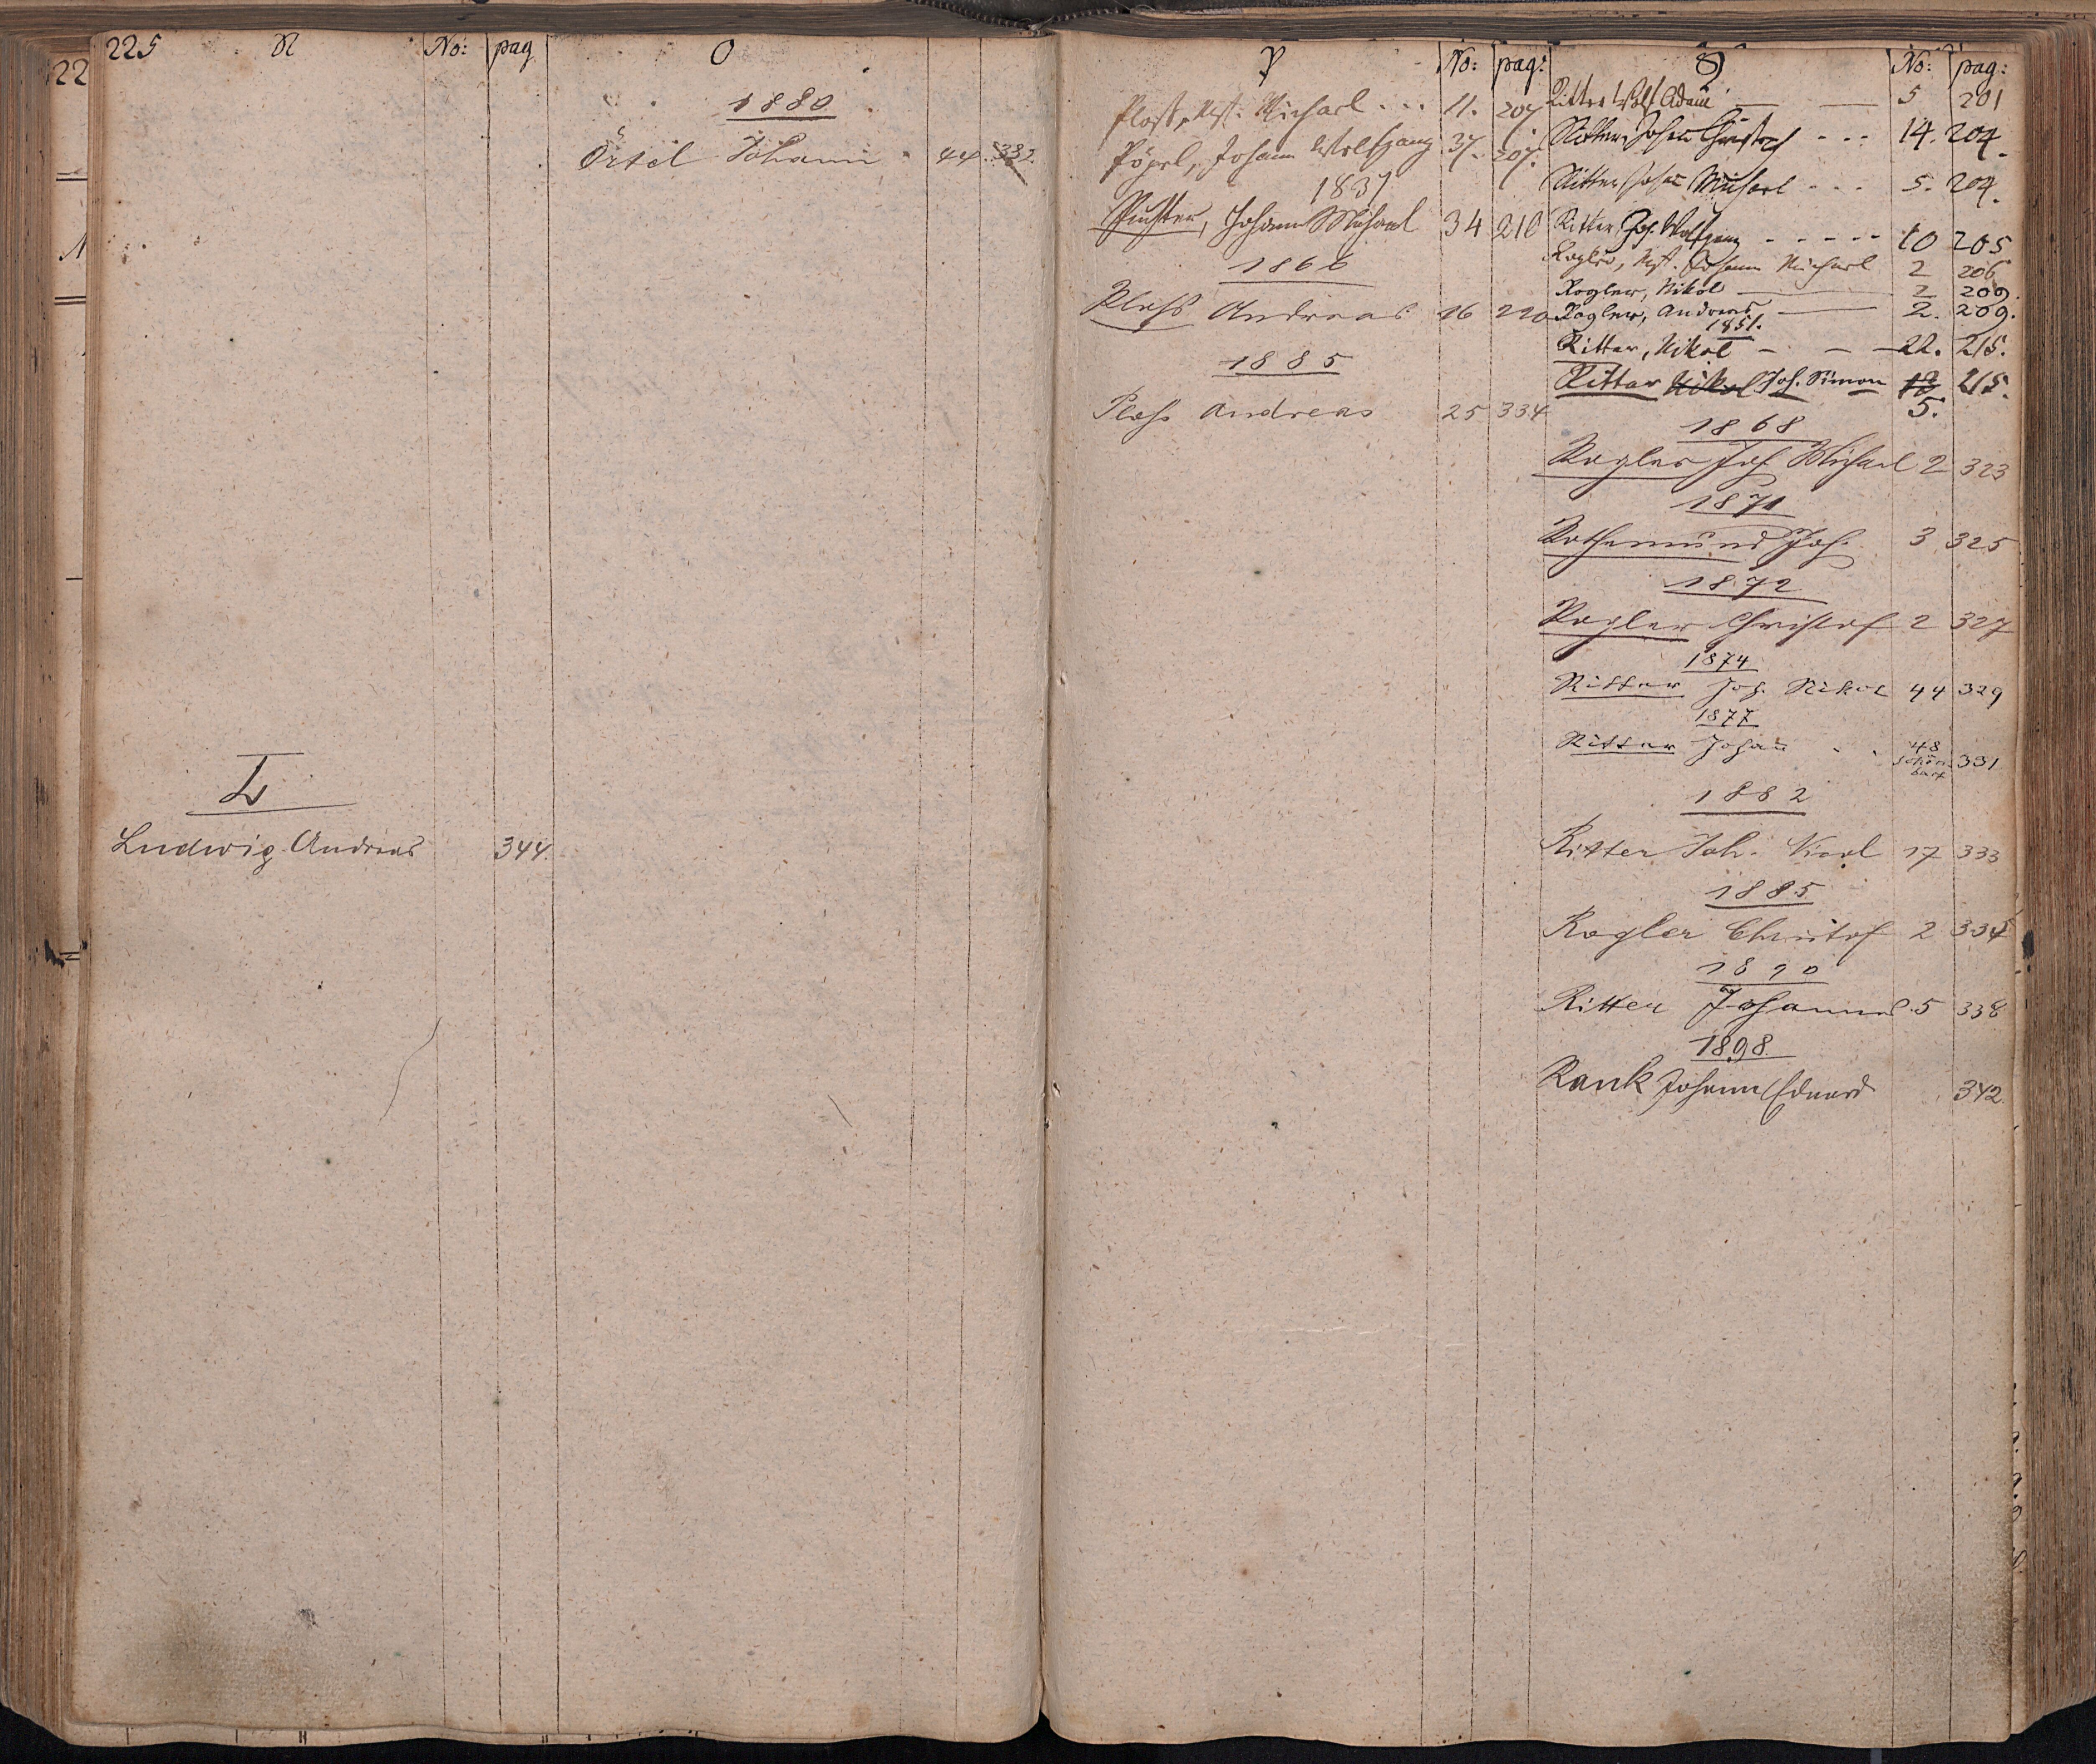 225 N No: pag
L
Ludwig Andreas 344.
O
1880
Örtel Johann 44. 333.
P No: pag:
Ploß, Mst: Michael . . . 11. 207.
Pöpel, Johann Wolfgang 37. 207.
1837
Johann Michael 34 210
1866
Ploß Andreas 16 220
1885
Ploß Andreas 25 334
No: pag:
Ritter Wolf Adam 5 201
Ritter Johann Christoph - - - 14. 204.
Ritter Johann Michael - - - 5. 204.
Ritter Joh. Wolfgang - - - - - 10 205
Rogler, Mst. Johann Michael 2 206
Rogler, Nikol 2 209.
Rogler, Andreas 2. 209.
1851.
Ritter, Nikol 22. 215.
Ritter Nikol Joh. Simon 215.
5.
1868
Rogler Joh Michael 2 323
1871
Rothemund Joh. 3 325
1872
Rogler Christof 2 327
1874
Ritter Joh. Nikol 44 329
1877
Ritter Johann . . 48 331
1882
Ritter Joh. Nicol 17 333
1885
Rogler Christof 2 334
1890
Ritter Johannes 5 338
1898
Rank Johann Eduard 342.